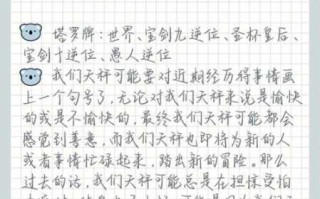 塔罗牌：世界、宝剑九逆位、圣杯皇后、
宝剑十逆位、愚人逆位
我们天秤可能要对近期经历得事情画
上一个句号了，无论对我们天秤来说是愉快
的或是不愉快的，最终我们天秤可能都会
感觉到善意，而我们天秤也即将为新的人
或者事情忙碌起来，踏出新的冒险。那么
过去的话，我们天秤可能总是在担惊受怕